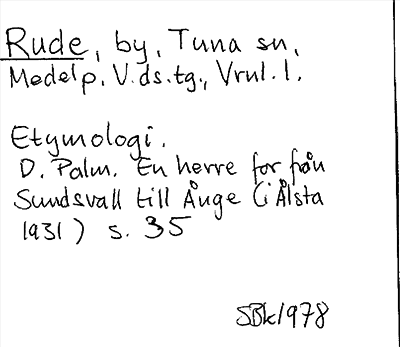 Rude, by, Tuna sn,
Medelp. V. ds. tg., Vrnl. l.
Etymologi.
D. Palm. En herre for från
Sundsvall till Ånge (i Ålsta
1931) s. 35
SBk 1978